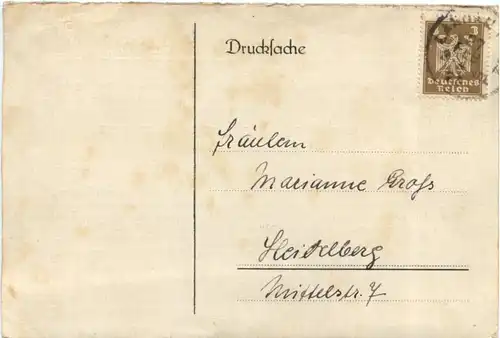 Drucksache
Deutsches
Reich
Fräulein
Marianne Groß
Heidelberg
Mittelstr. 7